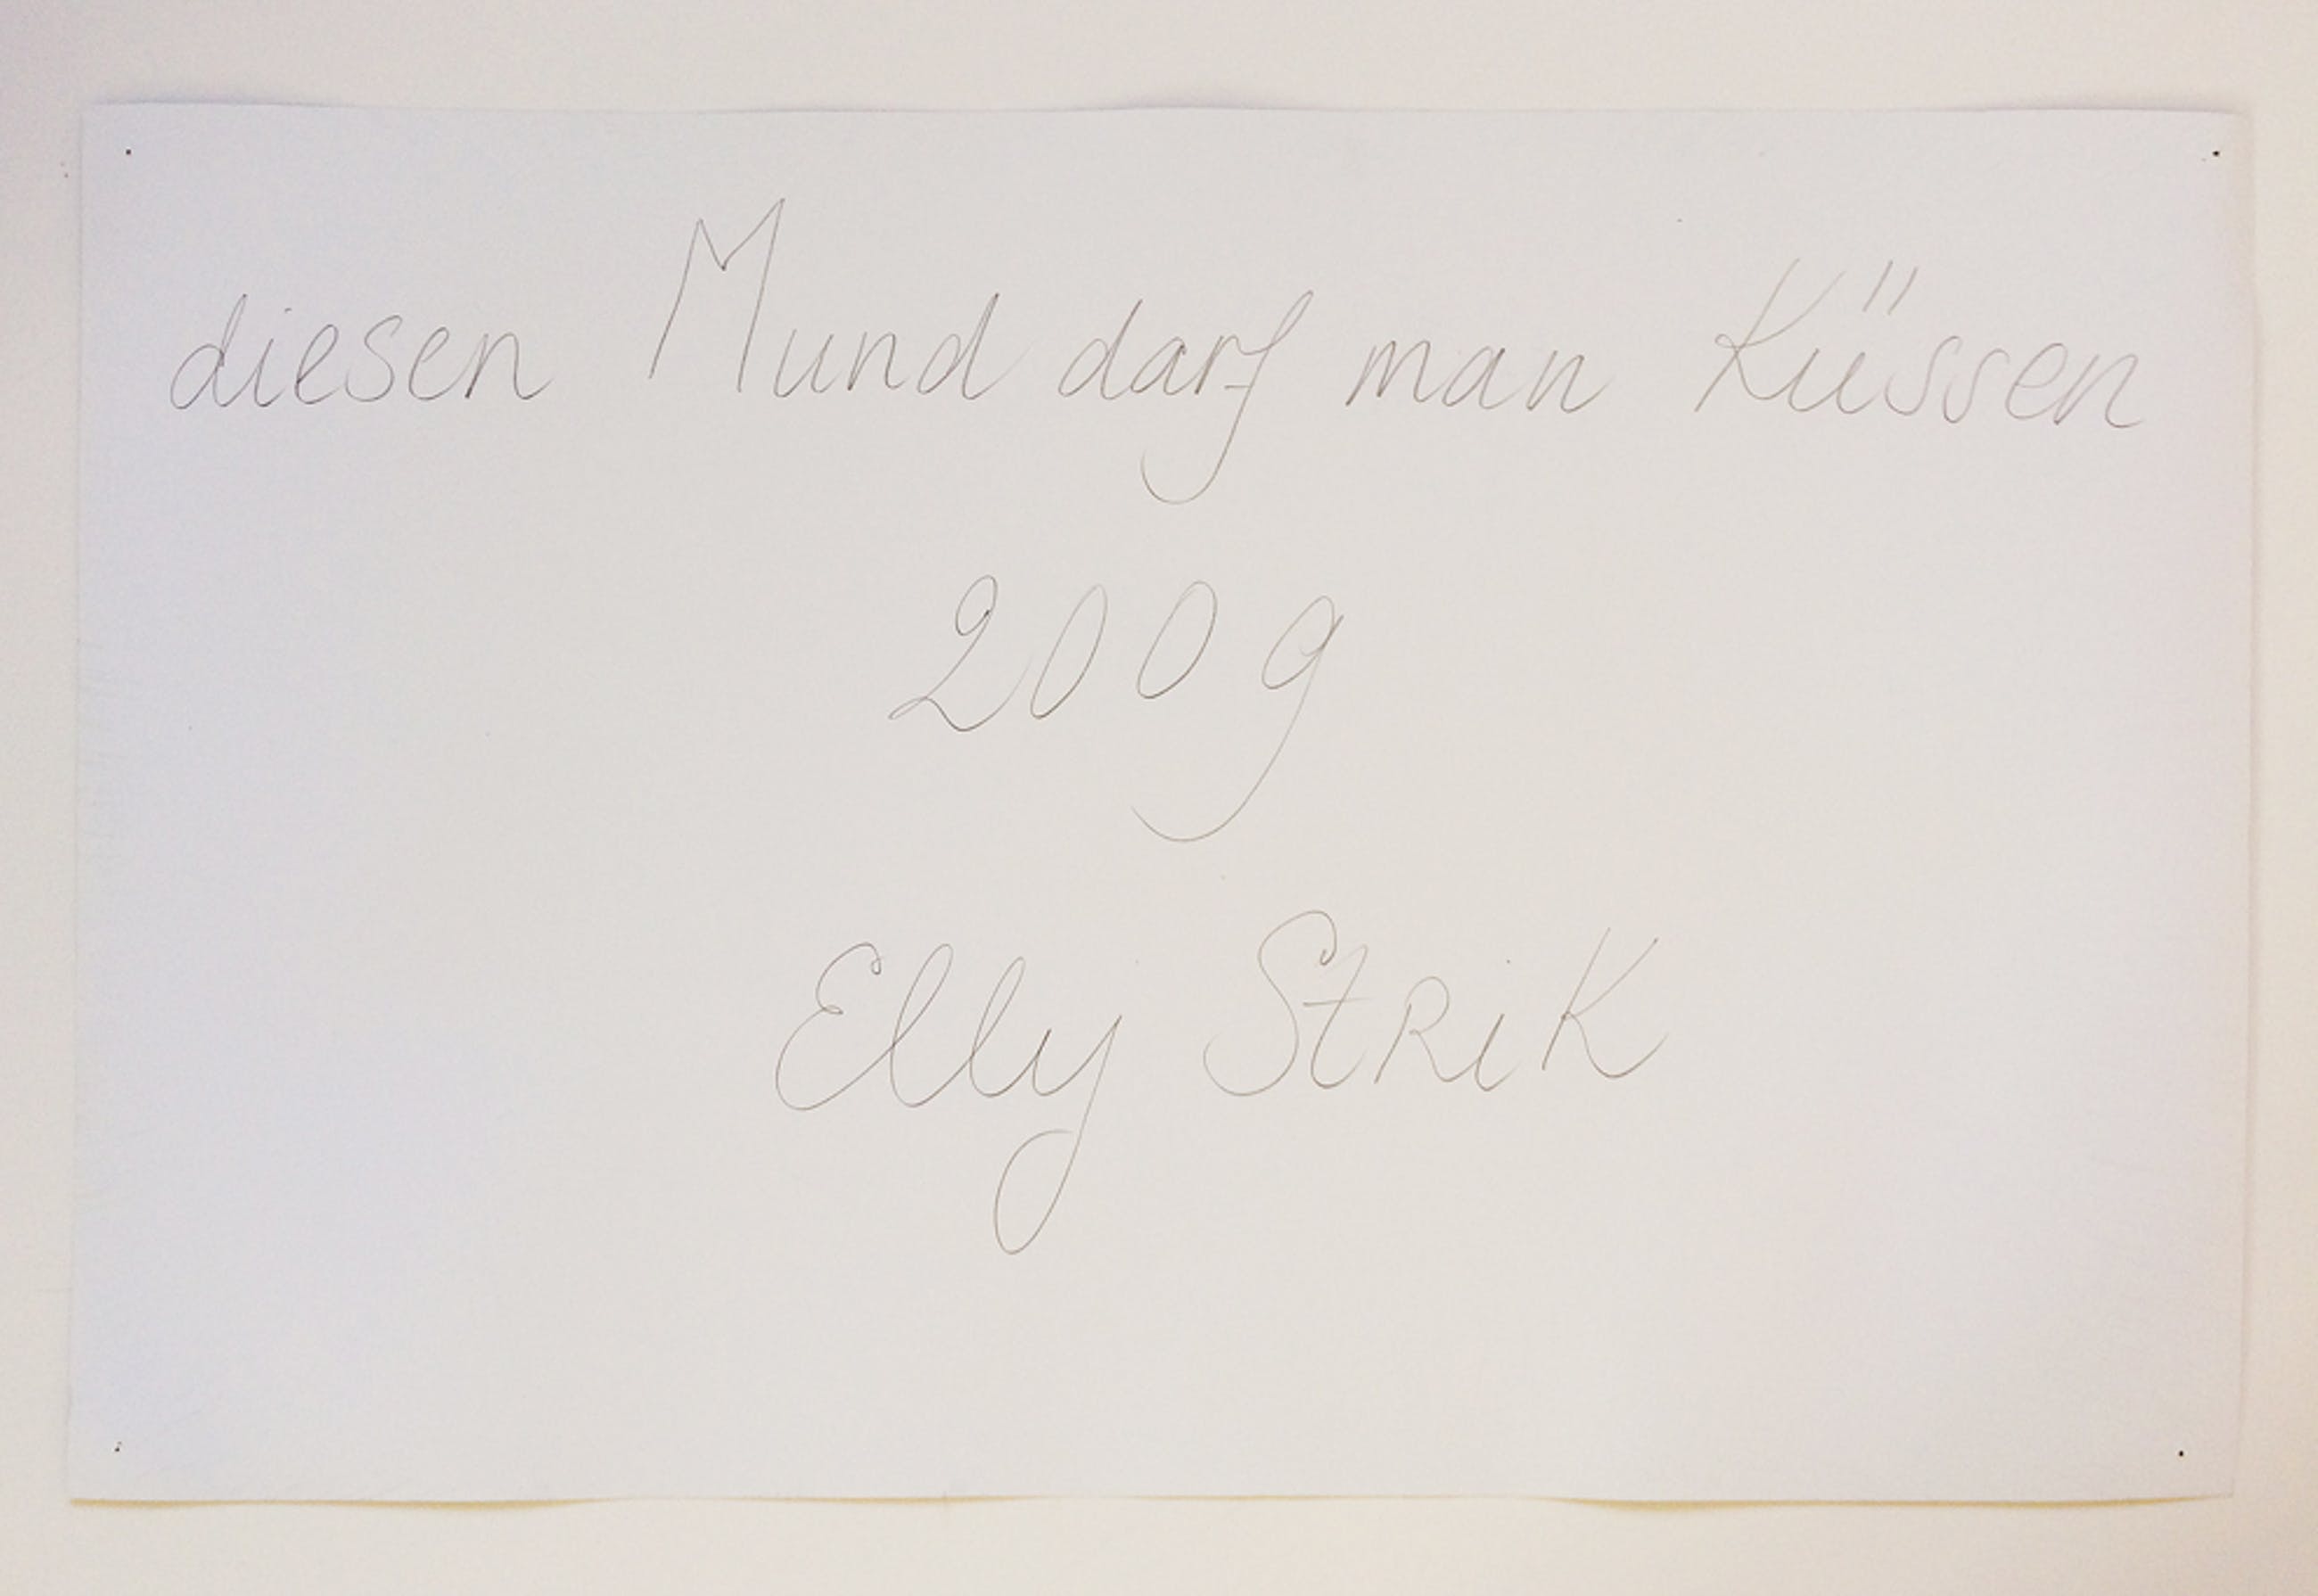 diesen Mund darf man Küssen
2009
Elly StRiK